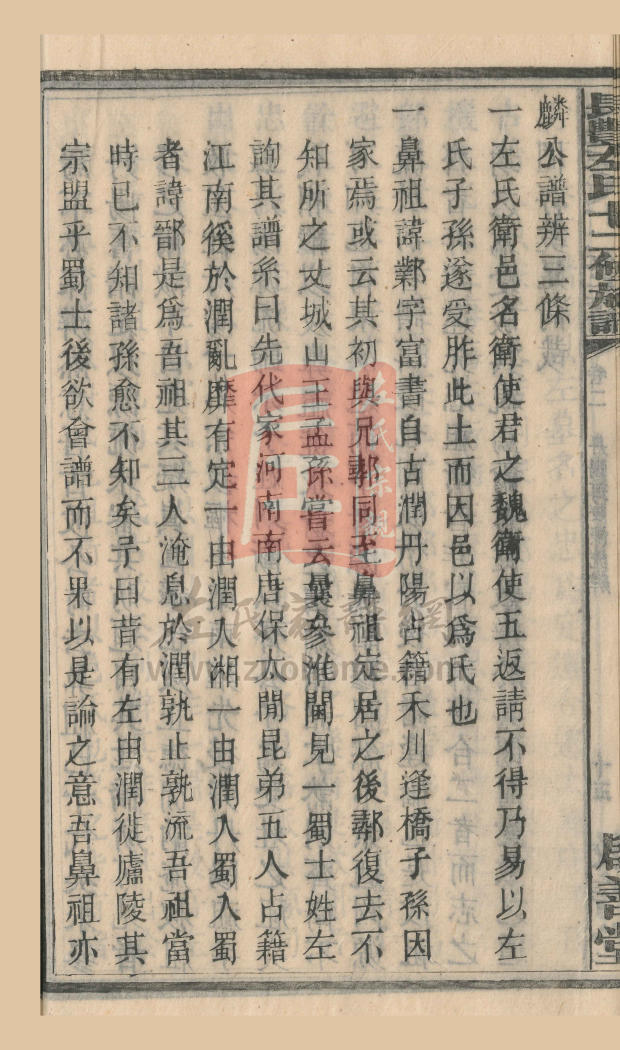 麟公譜辨三條
一左氏衛邑名衛使君之魏衛使五返請不得乃易以左
氏子孫遂受胙此土而因邑以爲氏也
一鼻祖諱鄴字富書自古潤丹陽占籍禾川逢橋子孫因
家焉或云其初與兄鄩同至鼻祖定居之後鄩復去不
知所之文城山王孟孫嘗云曩參淮閫見一蜀士姓左
詢其譜系曰先代家河南南唐保太間昆弟五人占籍
江南徯於潤亂靡有定一由潤入湘一由潤入蜀入蜀
者諱鄑是爲吾祖其三人淹息於潤孰止孰流吾祖當
時已不知諸孫愈不知矣予曰昔有左由潤徙廬陵其
宗盟乎蜀士後欲會譜而不果以是諭之意吾鼻祖亦
卷二
十五
左氏宗親
左氏族譜網